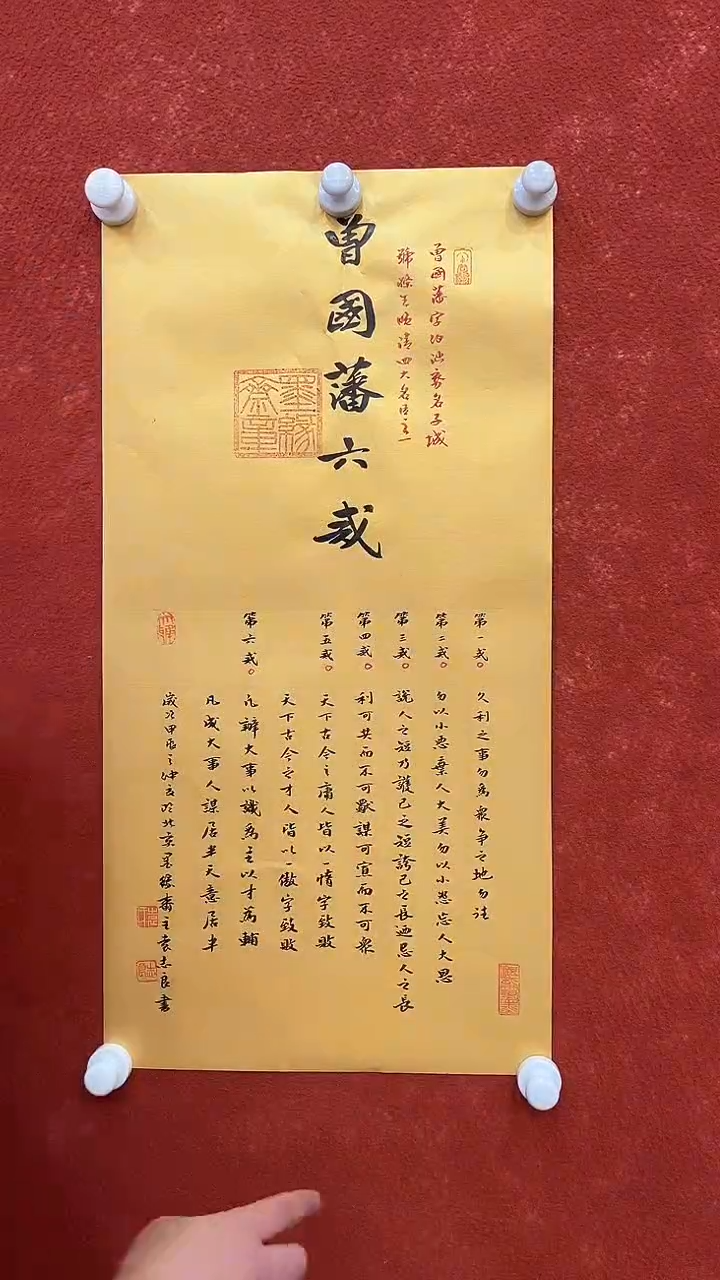 曾國藩字伯涵名子城
號滌生晚清四大名臣之一
曾國藩六戒
墨緣齋章
第一戒。久利之事勿為眾争之地勿往
第二戒。勿以小惡棄人大美勿以小怨忘人大恩
第三戒。說人之短乃護己之短誇己之長迺忌人之長
第四戒。利可共而不可獨謀可寡而不可眾
第五戒。天下古今之庸人皆以一惰字致敗
天下古今之才人皆以一傲字致敗
第六戒。凡辦大事以識為主以才為輔
凡成大事人謀居半天意居半
歲次甲辰之仲夏於北京墨緣齋主袁志良書